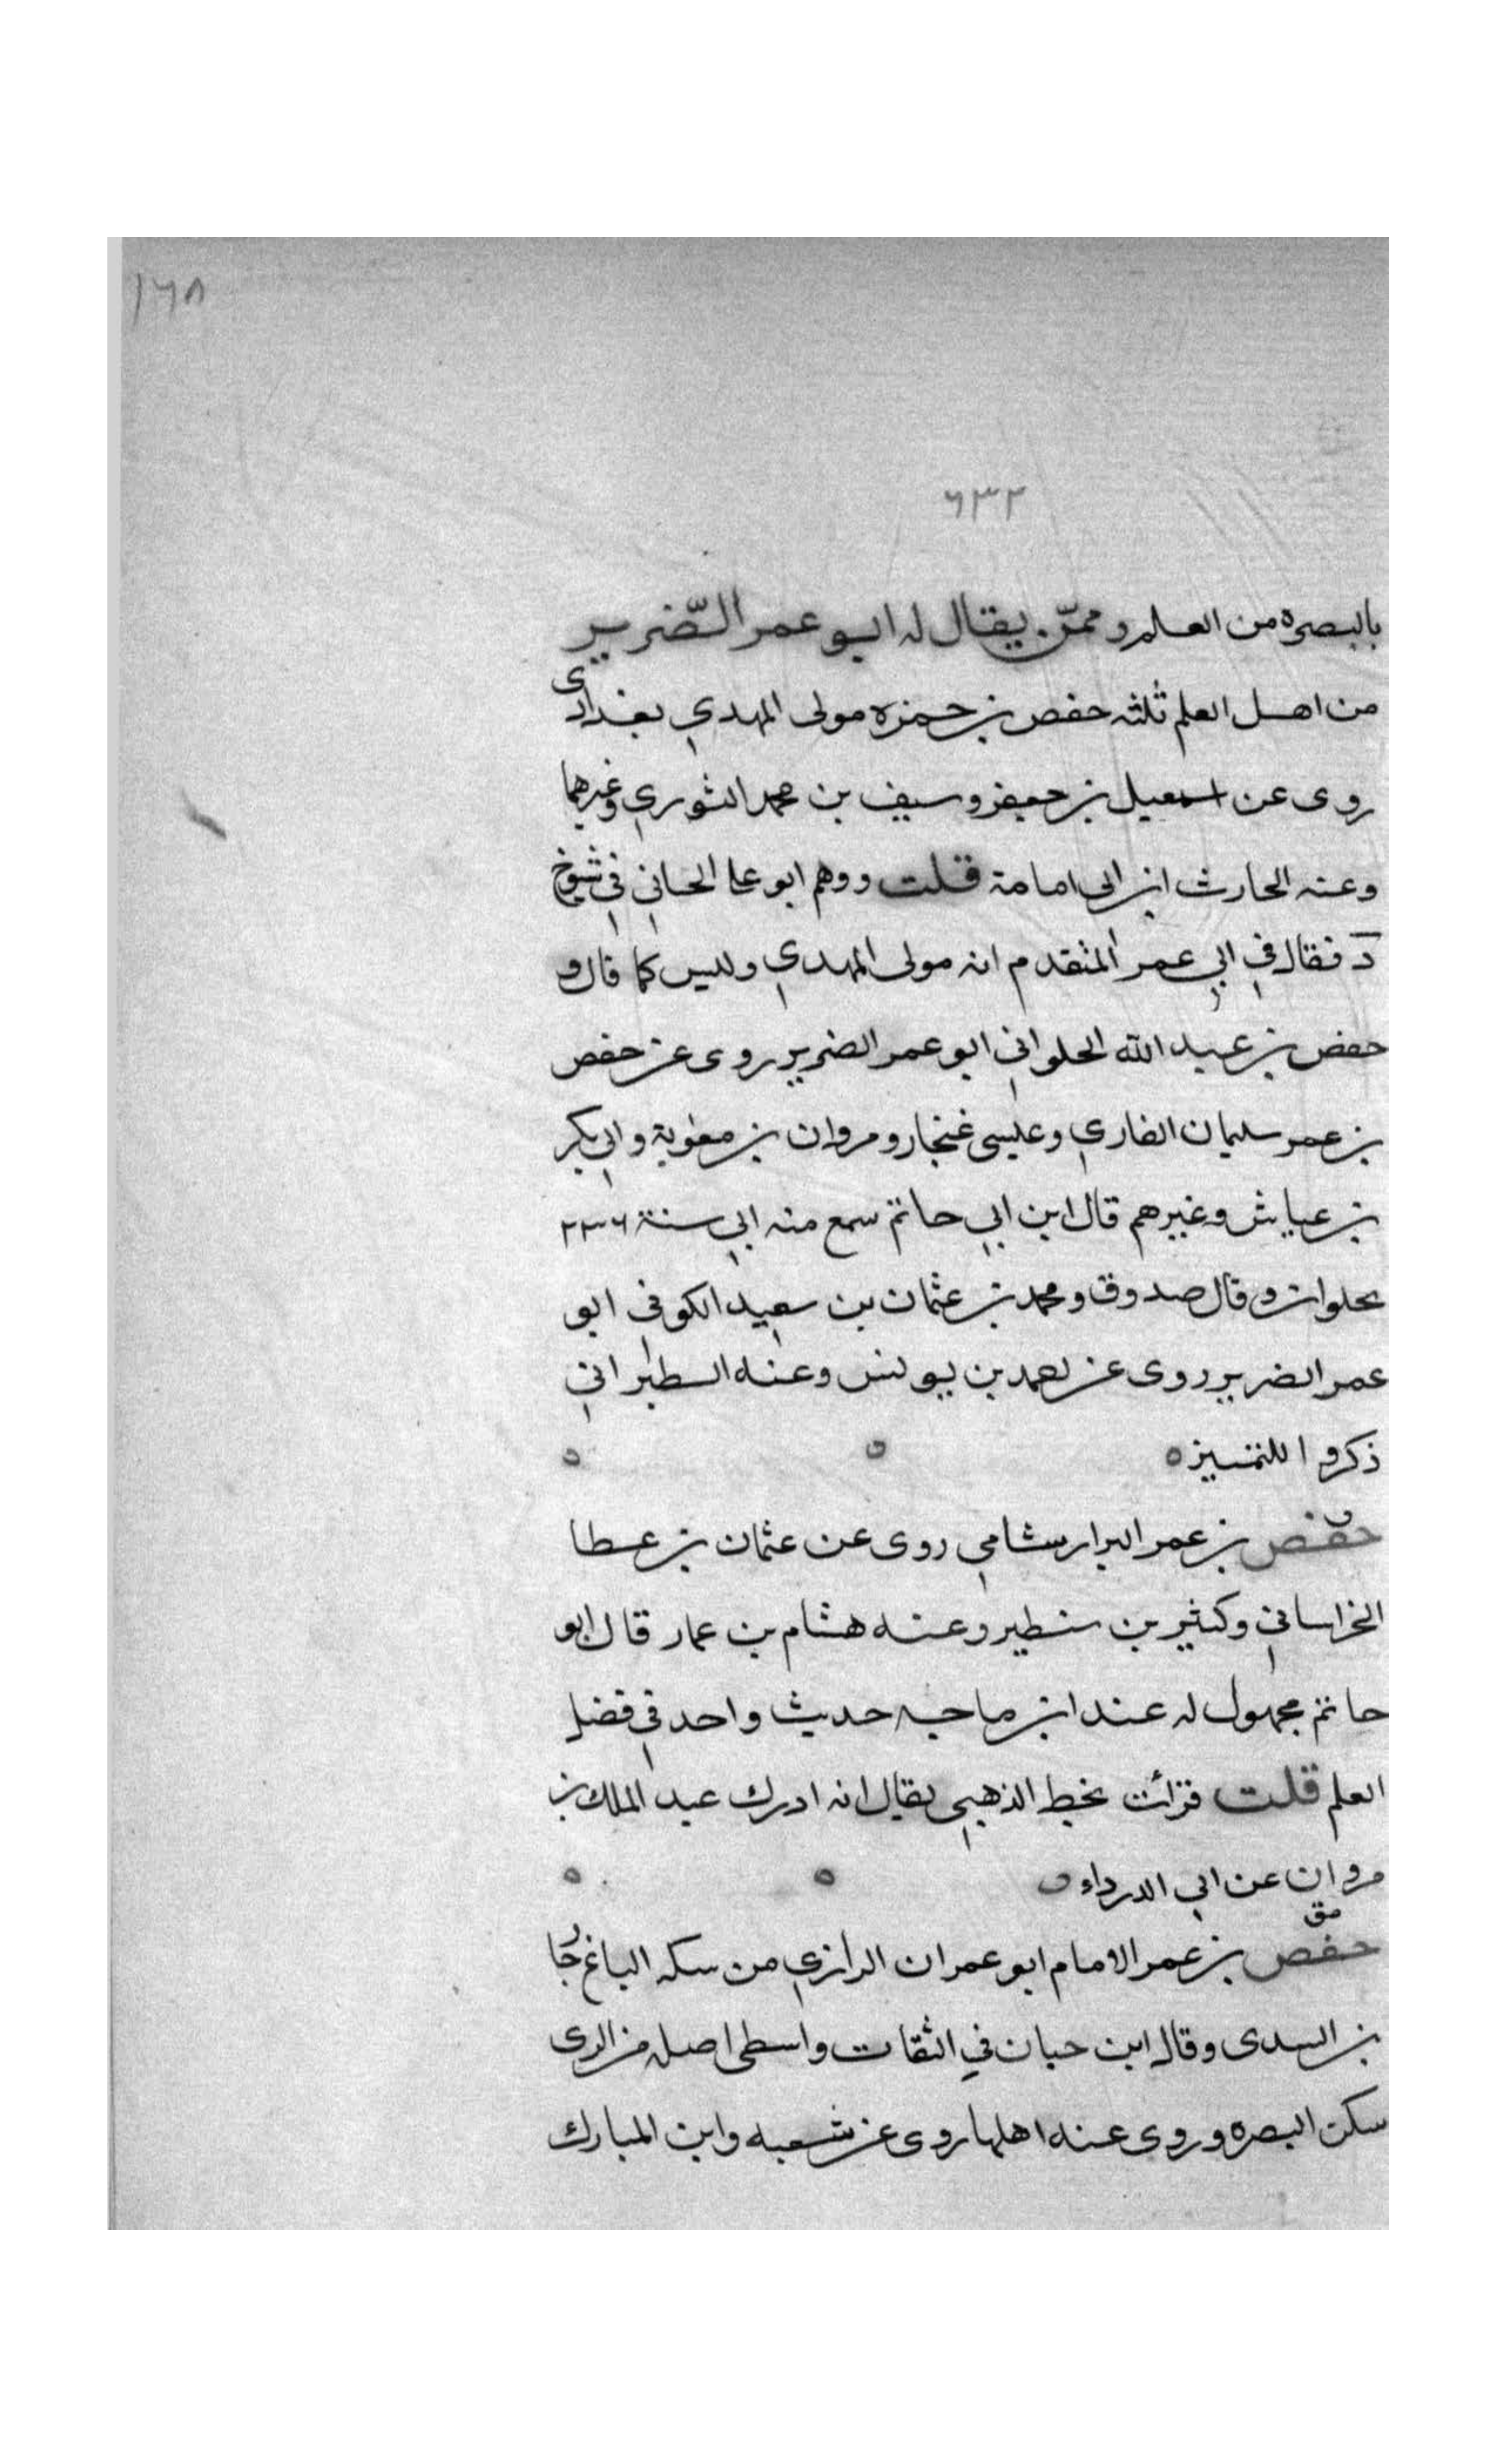 ١٦٨
٦٣٢
بالبصره من العلم وممن يقال له ابو عمر الضّرير
من اهل العلم ثلثه حفص بن حمزه مولى المهدي بغدادى
روى عن اسمعيل بن جعفر وسيف بن محمد الثوري وغيرهما
وعنه الحارث ابن ابى امامة قلت ووهم ابو عا الحاني في شيوخ
د فقال في ابي عمر المتقدم انه مولى المهدي وليس كما قال و
حفص بن عبد الله الحلواني ابو عمر الضرير روى عن حفص
بن عمر سليمان القاري وعيسى غنجار ومروان بن معوية وابي بكر
بن عياش وغيرهم قال ابن ابي حاتم سمع منه ابي سنة ٢٣٦
بحلوان وقال صدوق ومحمد بن عثمان بن سعيد الكوفى ابو
عمر الضرير روى عن احمد بن يونس وعنه الطبراني
ذكروا للتمييز ه
حفص بن عمر البزار شامي روى عن عثمان بن عطا
الخراساني وكثير بن شنطير وعنه هشام بن عمار قال ابو
حاتم مجهول له عند ابن ماجه حديث واحد في فضل
العلم قلت قرأت بخط الذهبي يقال انه ادرك عبد الملك بن
مروان عن ابي الدرداء
مق
حفص بن عمر الامام ابو عمران الرازي من سكه الباغ جا
بن السدى وقال ابن حبان في الثقات واسطى اصله من الرى
سكن البصره وروى عنه اهلها روى عن شعبه وابن المبارك